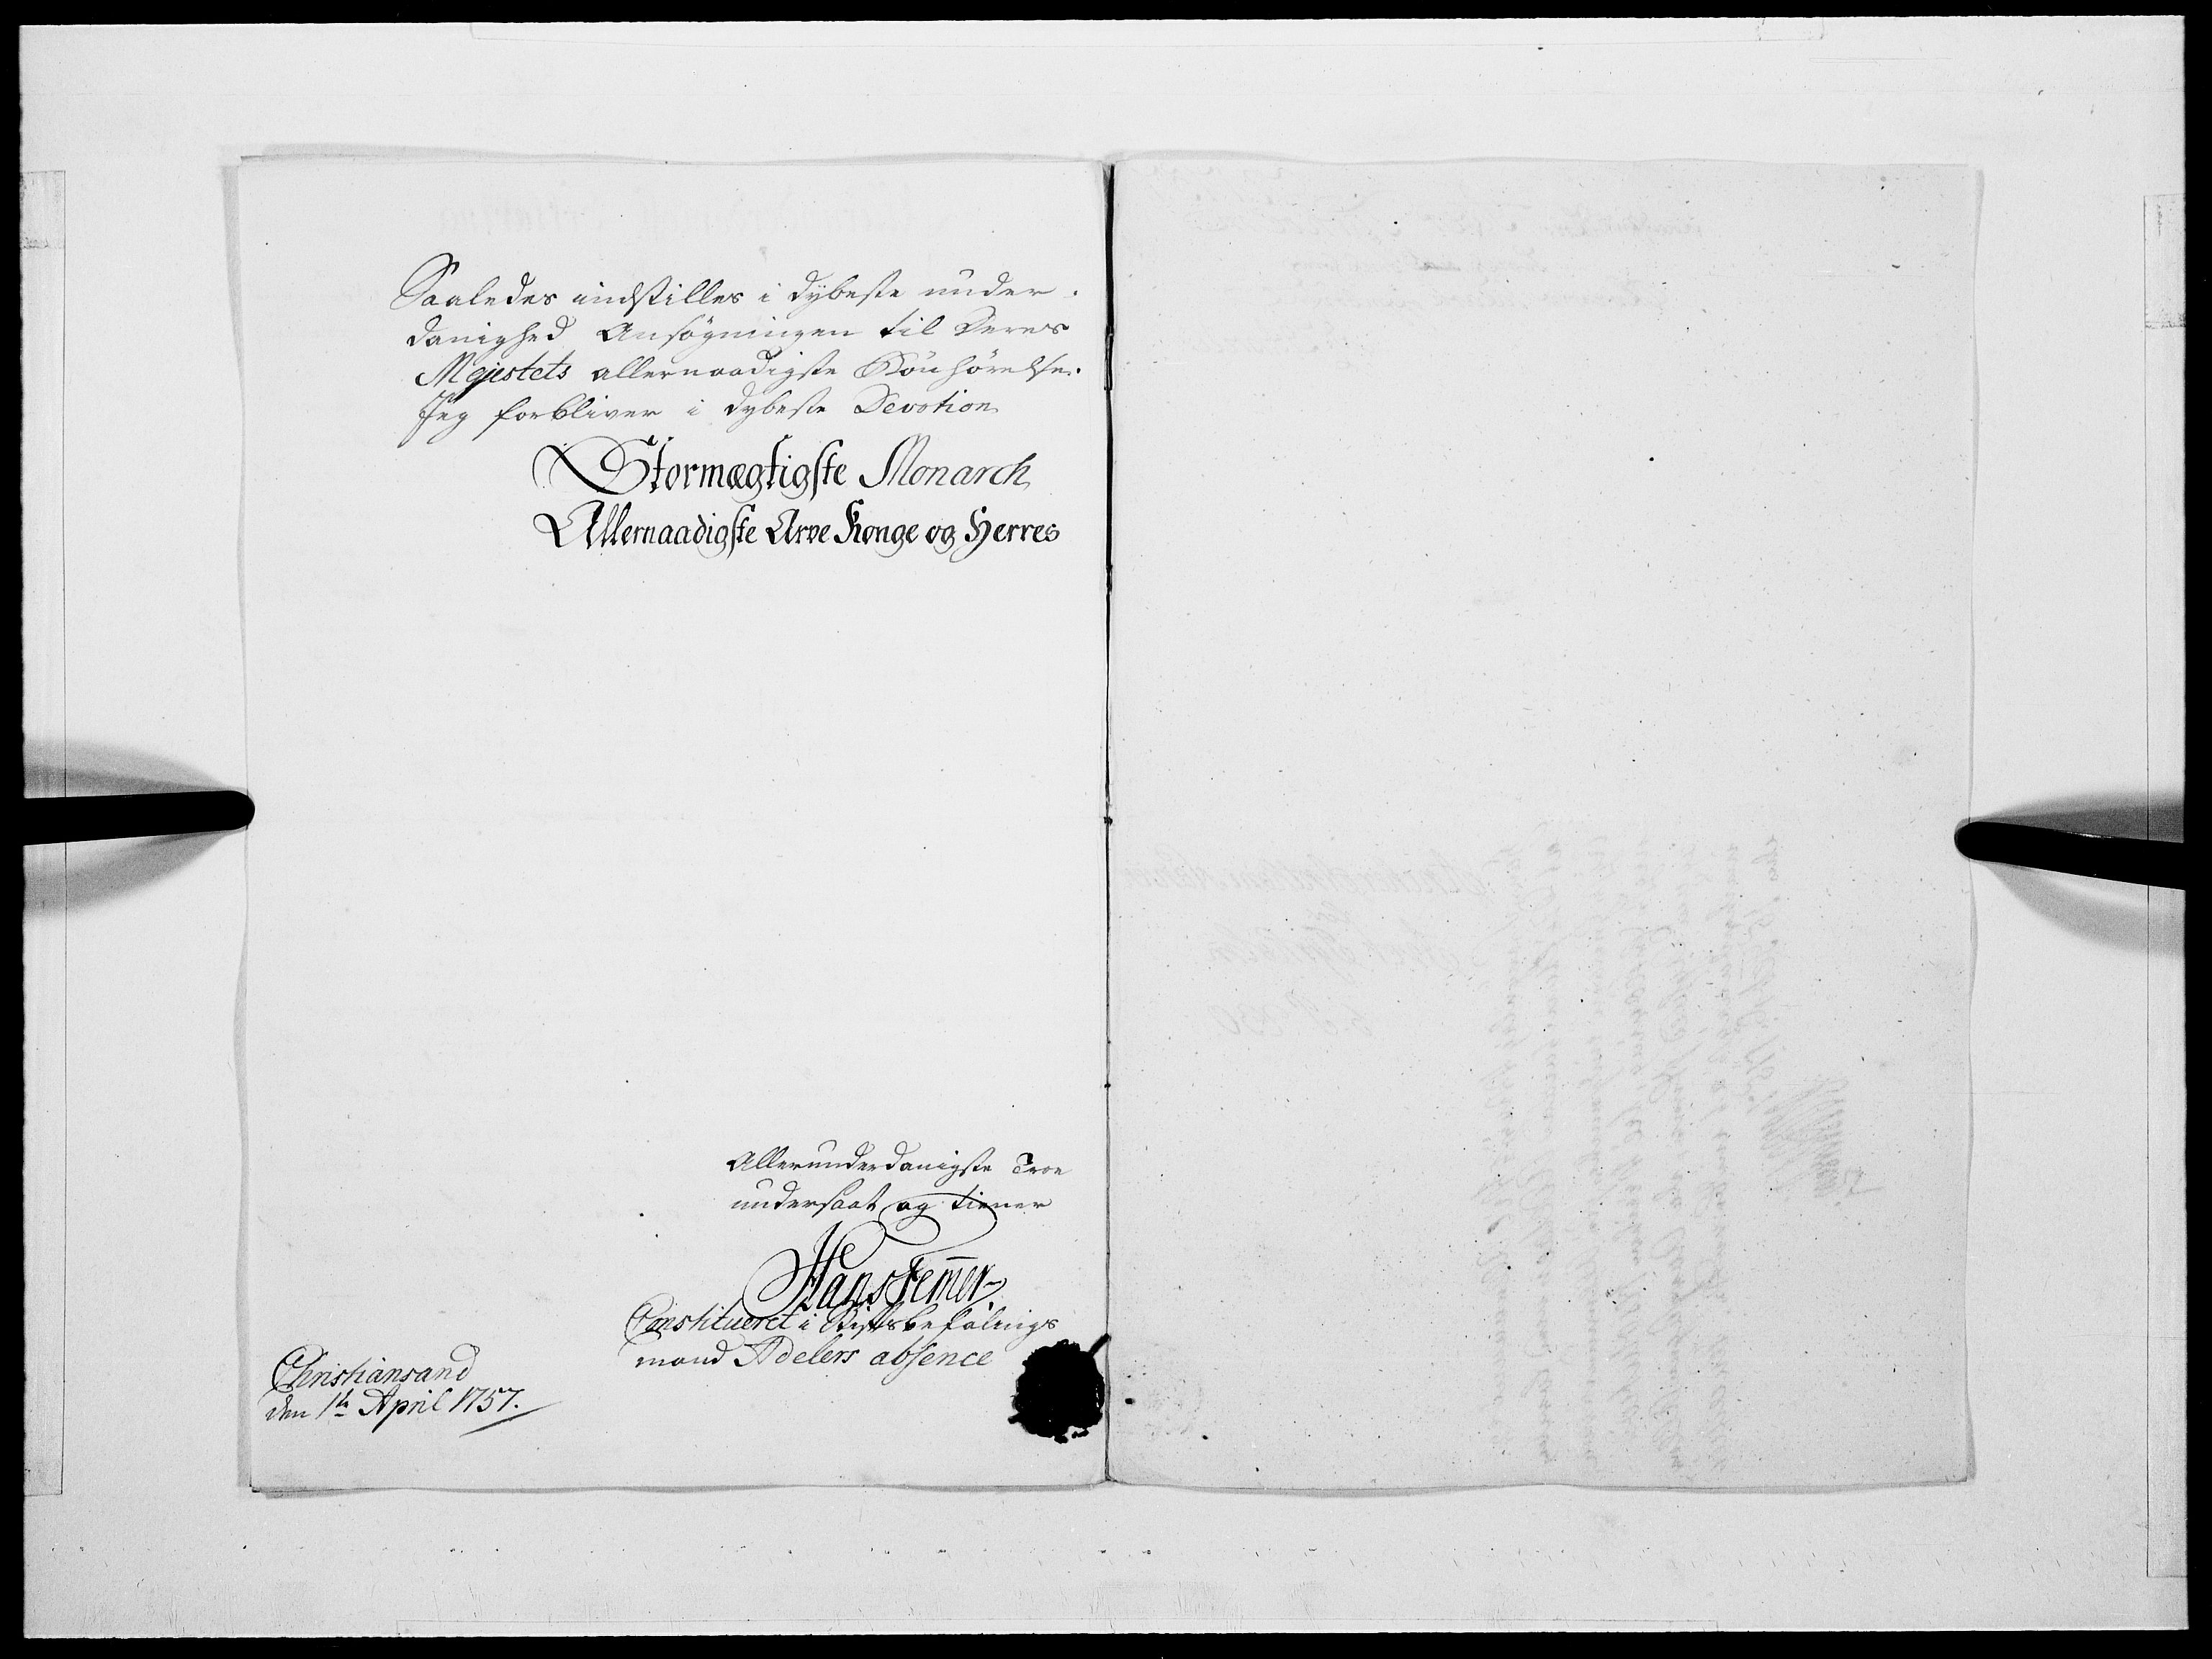 Saaledes indstilles i dybeste under-
danighed Ansøgningen til Deres
Majestets allernaadigste Bönhörelse.
Jeg forbliver i dybeste Devotion
Stormægtigste Monarch
Allernaadigste Arve Konge og Herres
Allerunderdanigste Troe
undersaat og tiener
Hans Fem̄er
Constitueret i Stiftsbefalings
mand Adelers absence
Christiansand
den 1te April 1757.